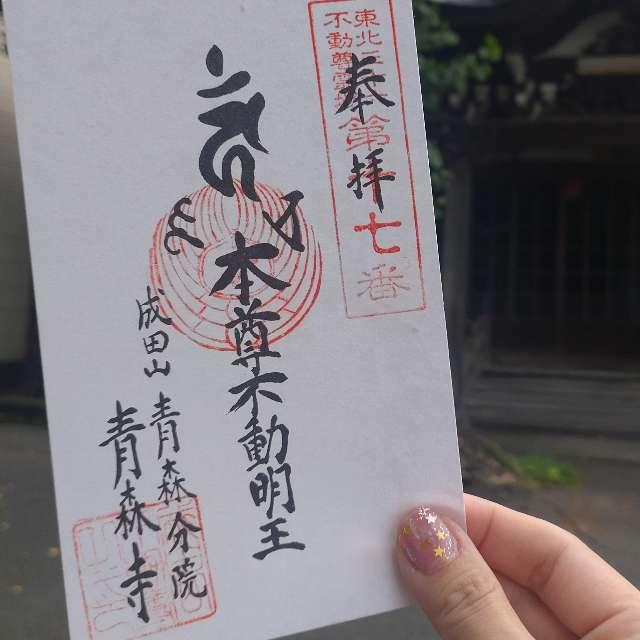 東北三
不動尊霊
第十七番
奉拝
本尊不動明王
成田山
青森分院
青森寺